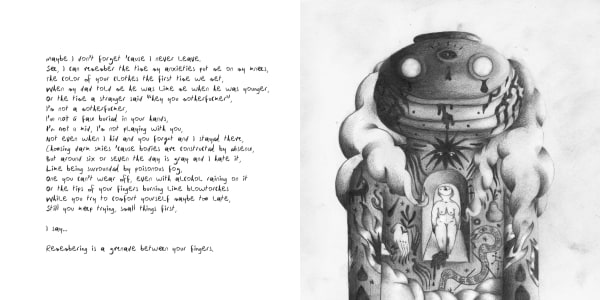 maybe I don't forget 'cause I never leave.
See, I can remember the time my anxieties put me on my knees,
The color of your clothes the first time we met,
When my dad told me he was like me when he was younger,
Or the time a stranger said "Hey you motherfucker",
I'm not a motherfucker,
I'm not a face buried in your hands,
I'm not a kid, I'm not playing with you,
Not even when I hid and you forgot and I stayed there,
Choosing dark skies 'cause bodies are constructed by absence,
But around six or seven the day is gray and I hate it,
Like being surrounded by poisonous fog,
One you can't wear off, even with alcohol raining on it
Or the tips of your fingers burning like blowtorches
While you try to comfort yourself maybe too late,
Still you keep trying, small things first,
I say...
Remembering is a grenade between your fingers.